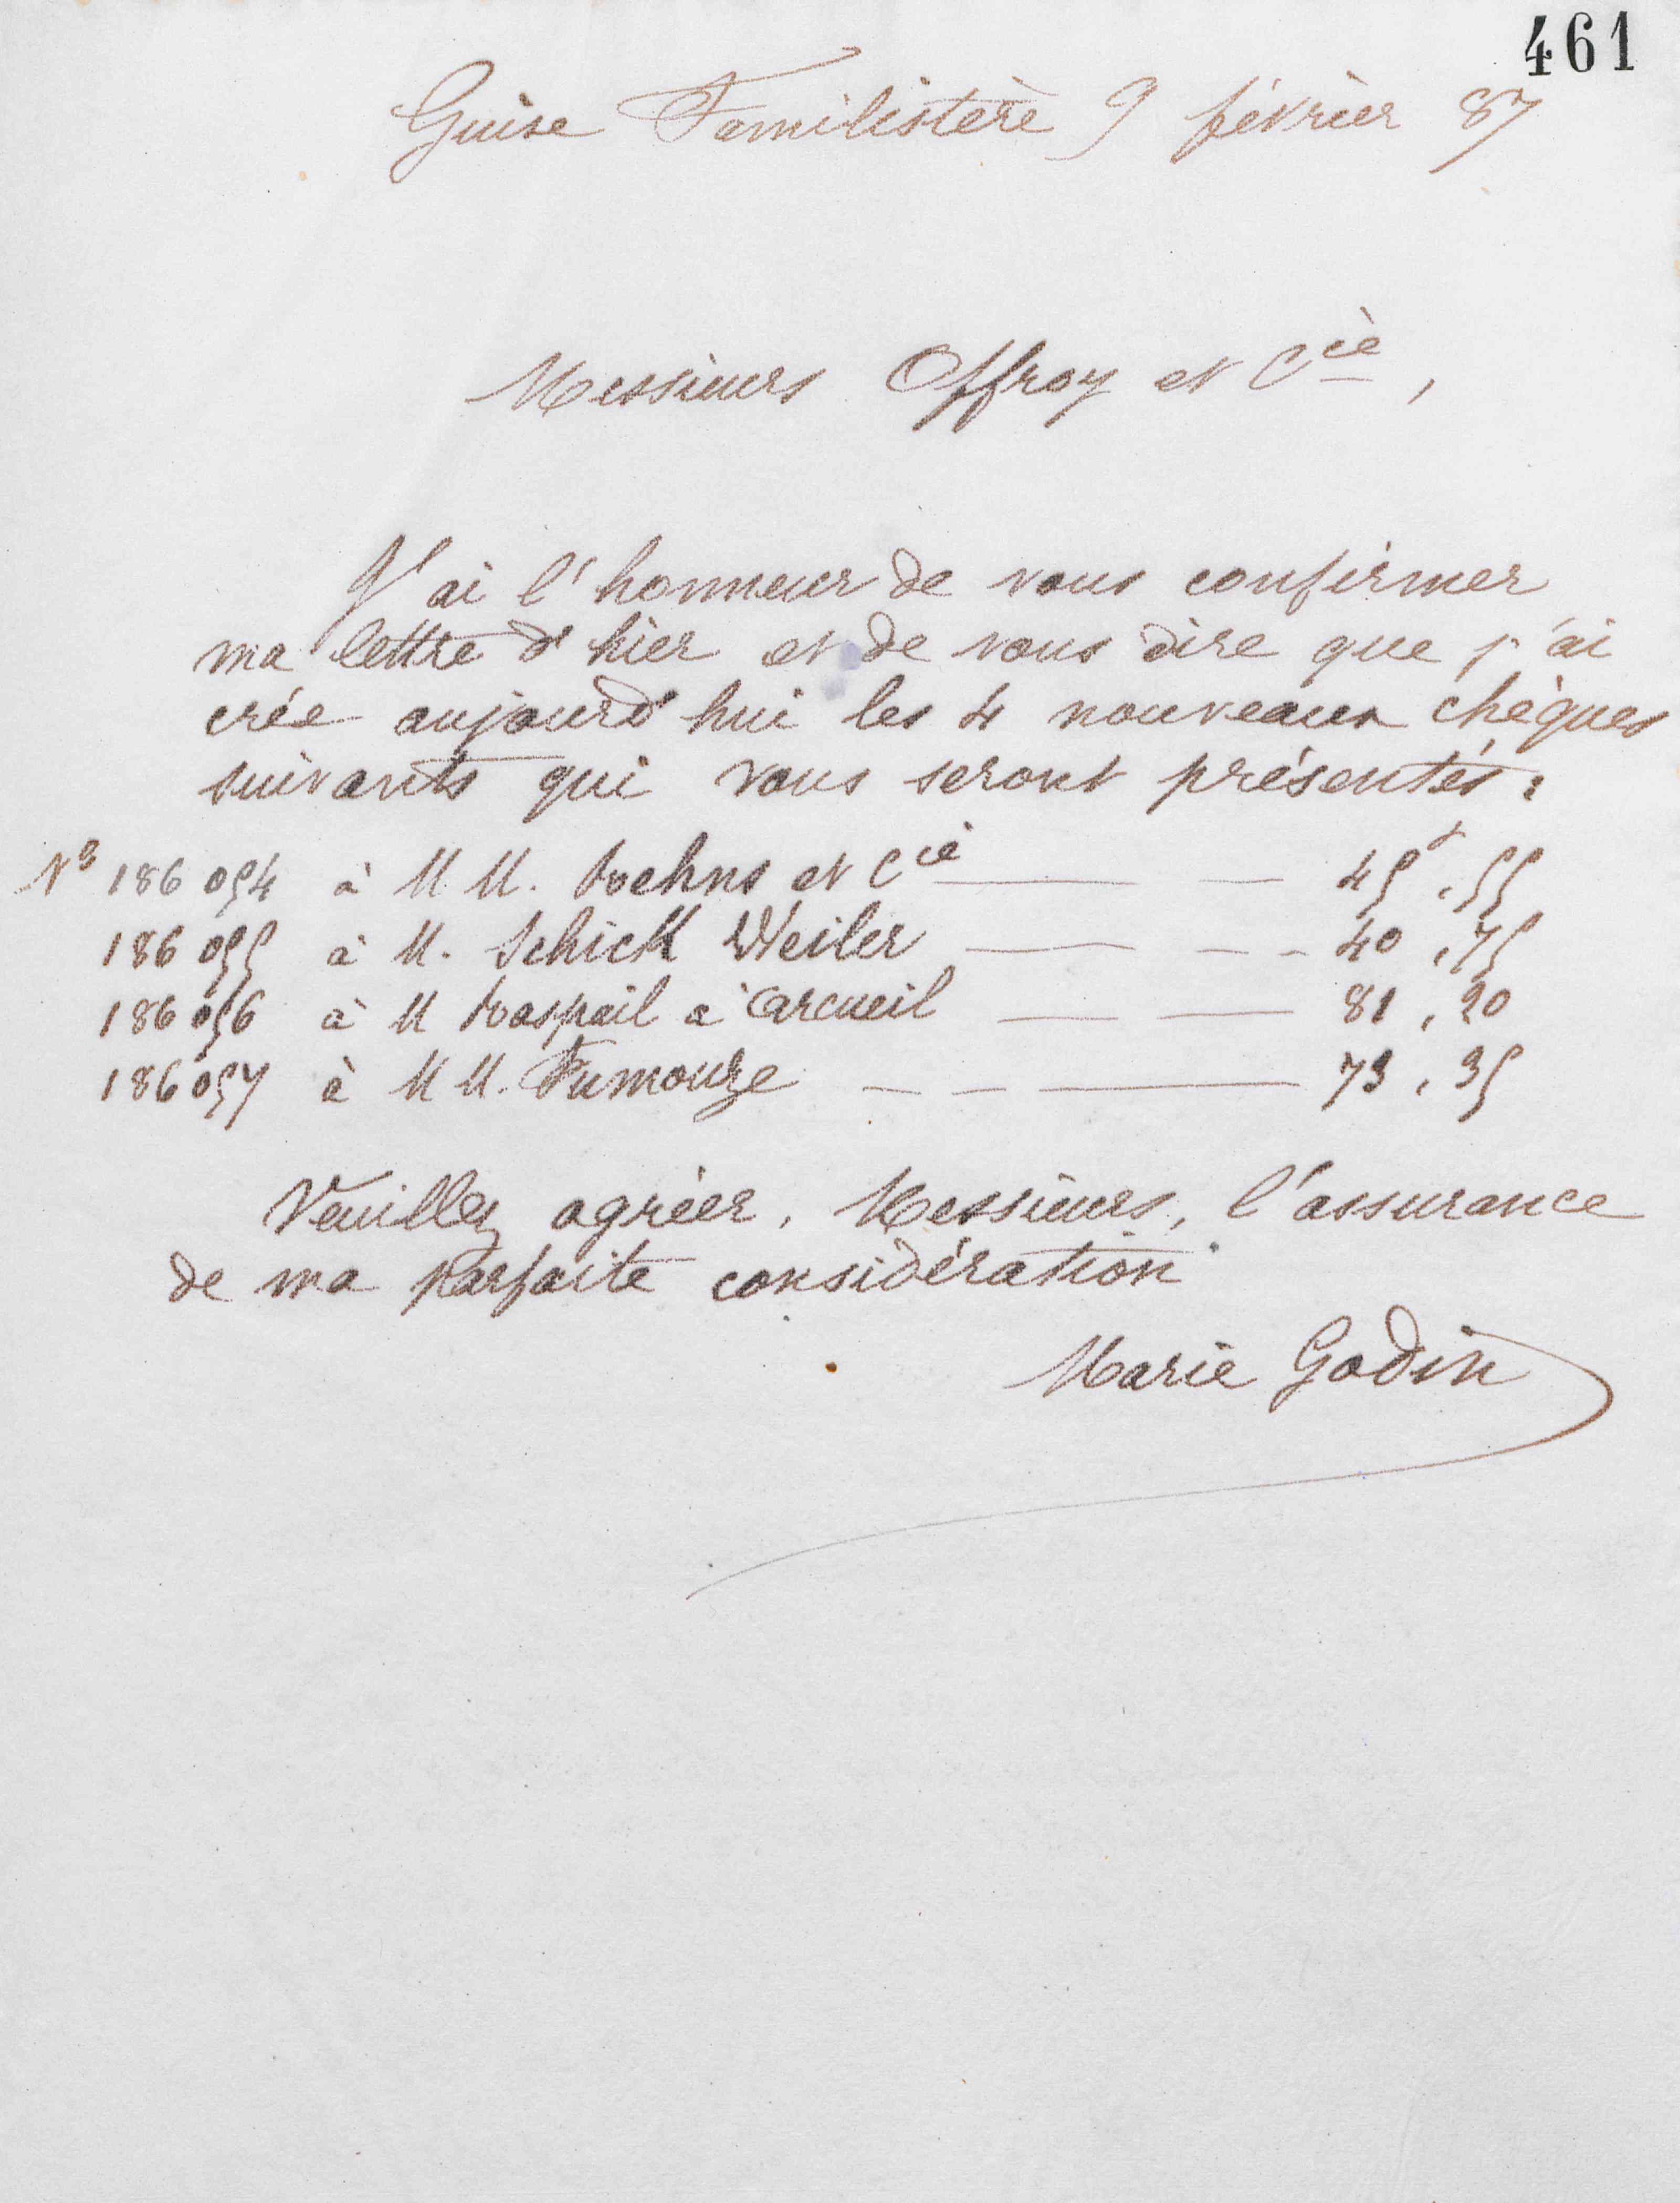 461
Guise Familistère 9 février 87
Messieurs Offroy et Cie,
J'ai l'honneur de vous confirmer
ma lettre d'hier et de vous dire que j'ai
crée aujourd'hui les 4 nouveaux chèques
suivants qui vous seront présentés :
No 186 054 à MM. et Cie 45f,55
186 055 à M. Schick Weiler 40,75
186 056 à M Raspail à Arcueil 81,20
186 057 à MM. Fumouze 73,35
Veuillez agréer, Messieurs, l'assurance
de ma parfaite considération
Marie Godin